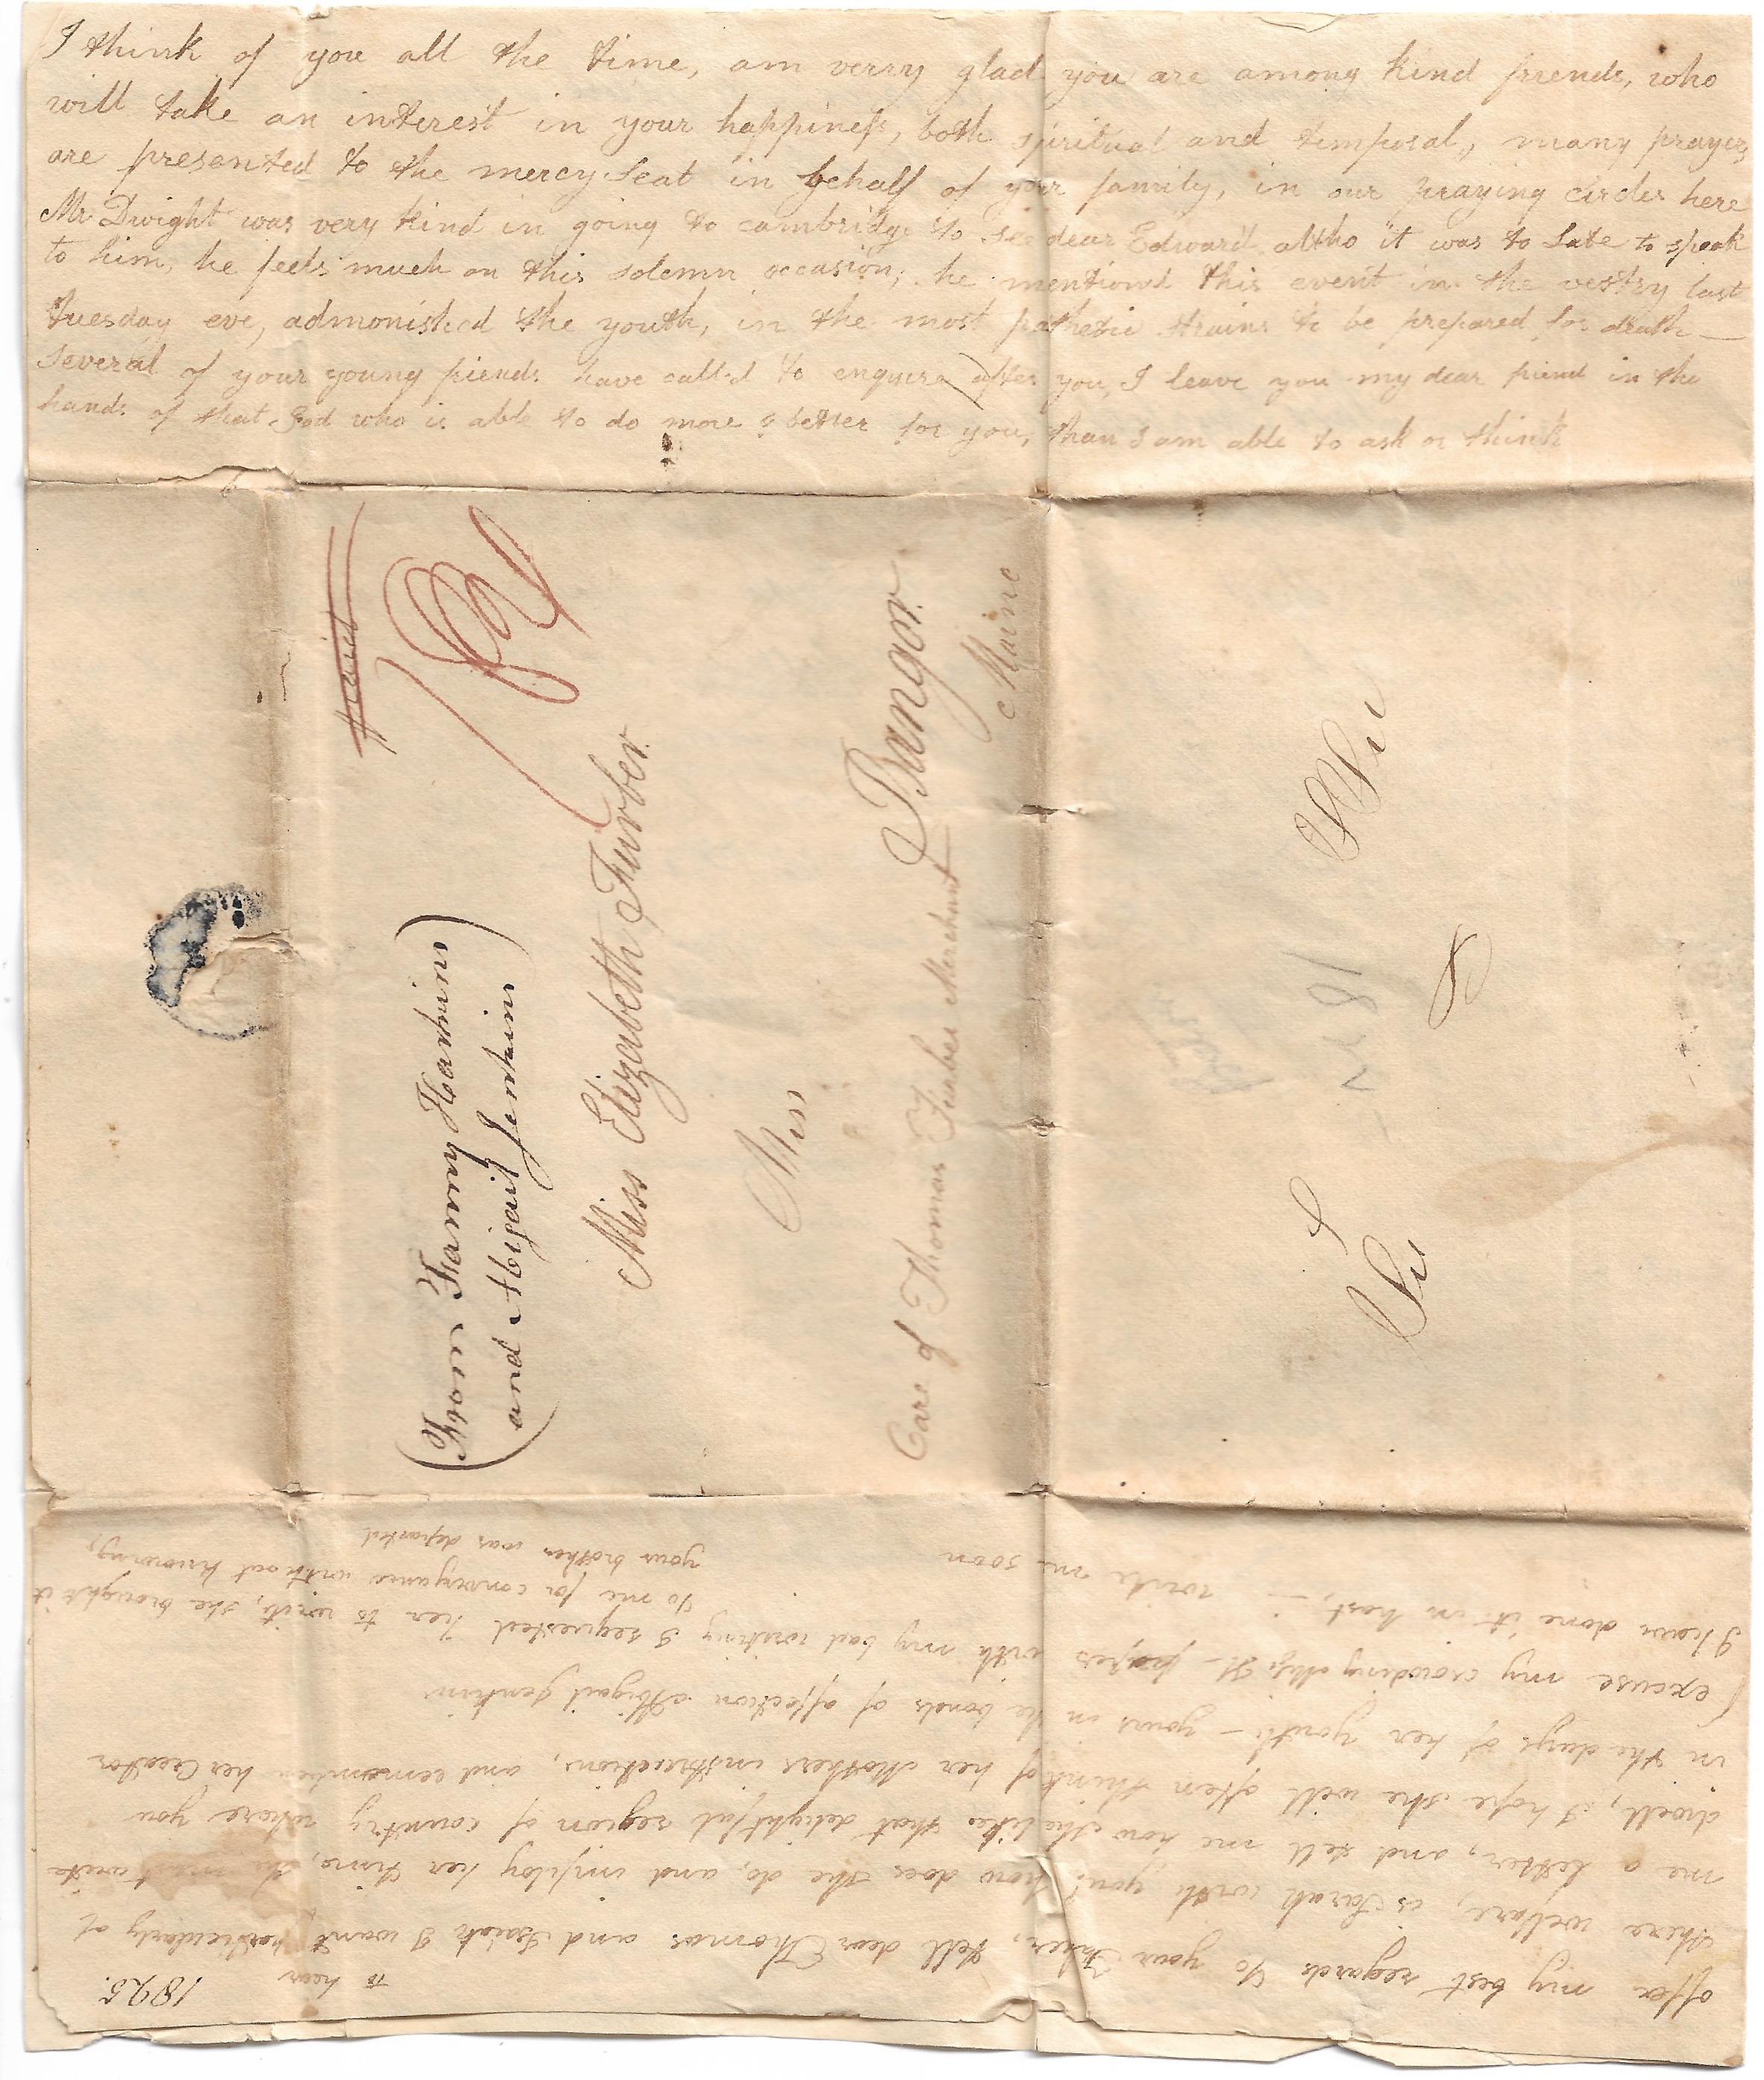 I think of you all the time, am verry glad you are among kind friends, who
will take an interest in your happiness, both spiritual and temporal, many prayers
are presented to the mercy Seat in behalf of your family, in our praying circles here
Mr Dwight was very kind in going to cambridge to see dear Edward altho it was to late to speak
to him, he feels much on this solemn occasion, he mentioned this event in the vestry last
tuesday eve, admonished the youth, in the most pathetic strains to be prepared for death—
Several of your young friends have called to enquire after you, I leave you my dear friend in the
hands of that God who is able to do more & better for you, than I am able to ask or think
Paid
(From Fanny Harkins)
(and Abigail Jenkins)
Miss Elizabeth Furber
Miss
Bangor.
Care of Thomas Furber Merchant
Maine
8
1825.
to hear
offer my best regards to your , tell dear Thomas and Isaiah I want particularly of
there welfare, is Sarah with you? how does she do, and imploy her time, write
me a letter, and tell me how she likes that delightful region of country where you
dwell, I hope she will often think of her Mothers instruction, and remember her Creator
in the days of her youth — yours in the bonds of affection Abigail Jenkins
excuse my crowding paper with my bad writing I requested her to write, she brought it
I have done it in hast,— write me soon
to me for conveyance without knowing,
your brother was departed